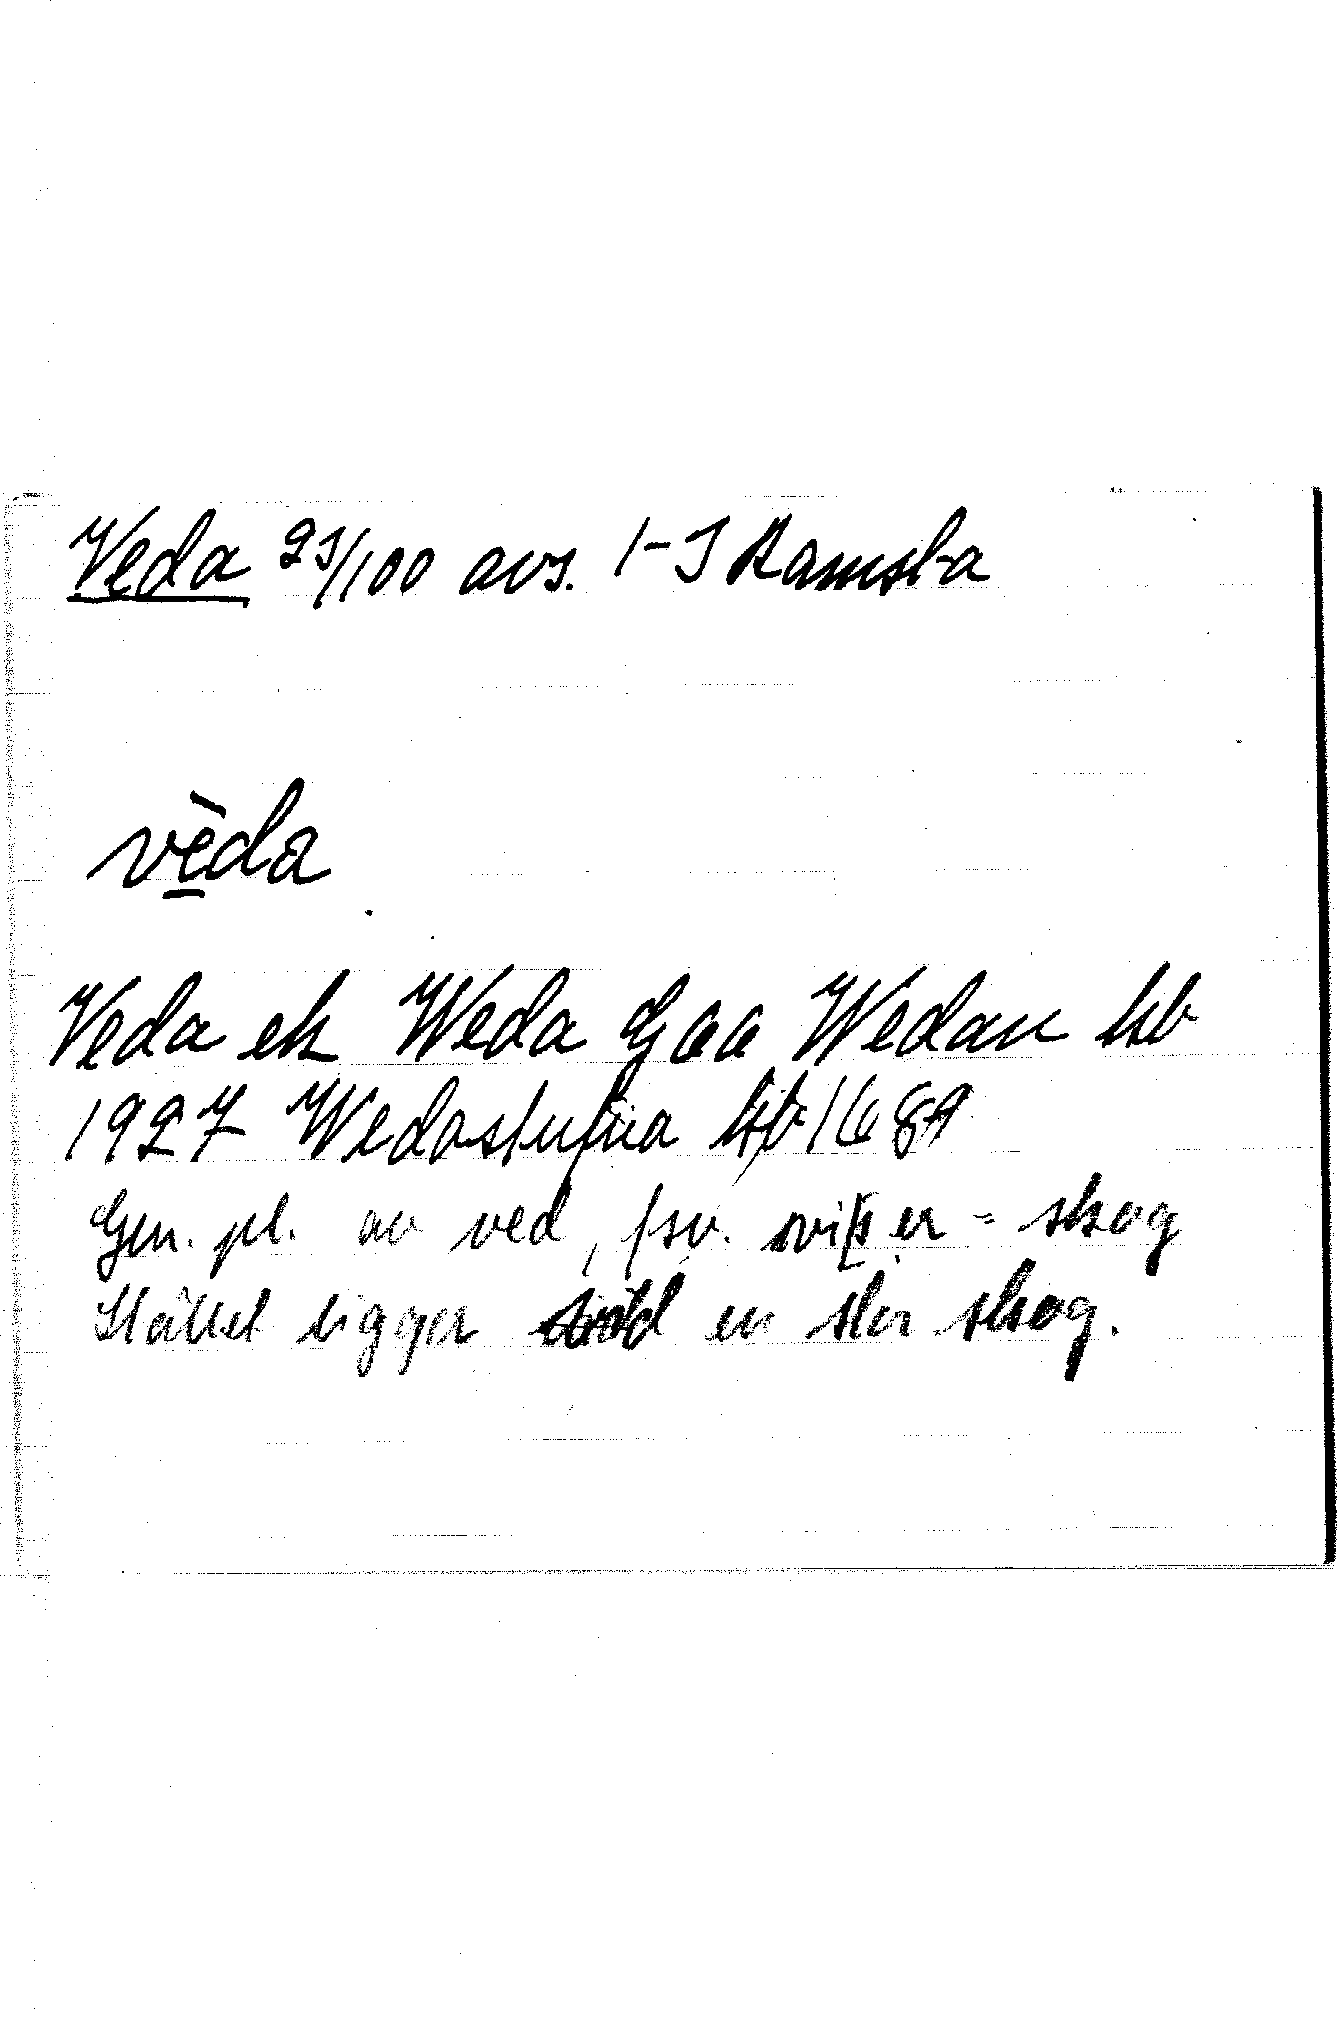 Veda 23/100 avs. 1-3 Ramsta
vèda
Veda ek Weda Gää Wedan kb
1927 Wedastufua hfb 1689
Gen. pl. av ved, fsv. viþer = skog
Stället ligger vid en stor skog.